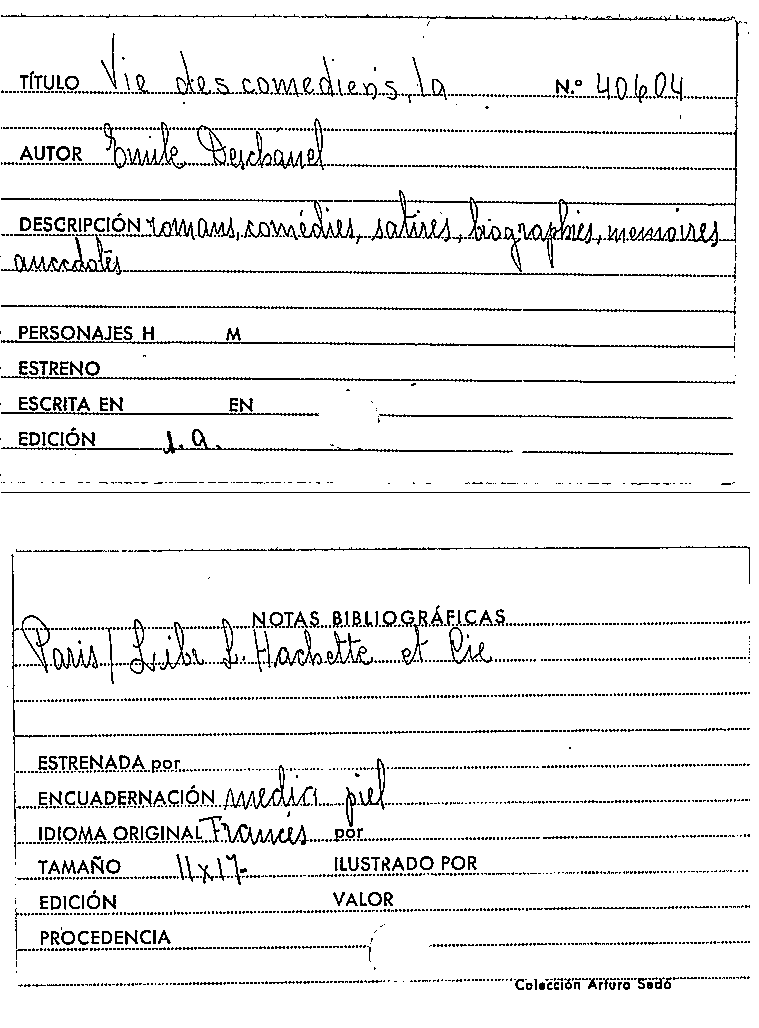 TÍTULO Vie des comediens, la N.º 40604
AUTOR Emile Deschanel
DESCRIPCIÓN romans, comédies, satires, biographies, memoires
anecdotes
PERSONAJES H M
ESTRENO
ESCRITA EN EN
EDICIÓN s.a.
NOTAS BIBLIOGRÁFICAS
Paris / Libr L. Hachette et Cie
ESTRENADA por
ENCUADERNACIÓN media piel
IDIOMA ORIGINAL Francés por
TAMAÑO 11x17 ILUSTRADO POR
EDICIÓN VALOR
PROCEDENCIA
Colección Arturo Sedó